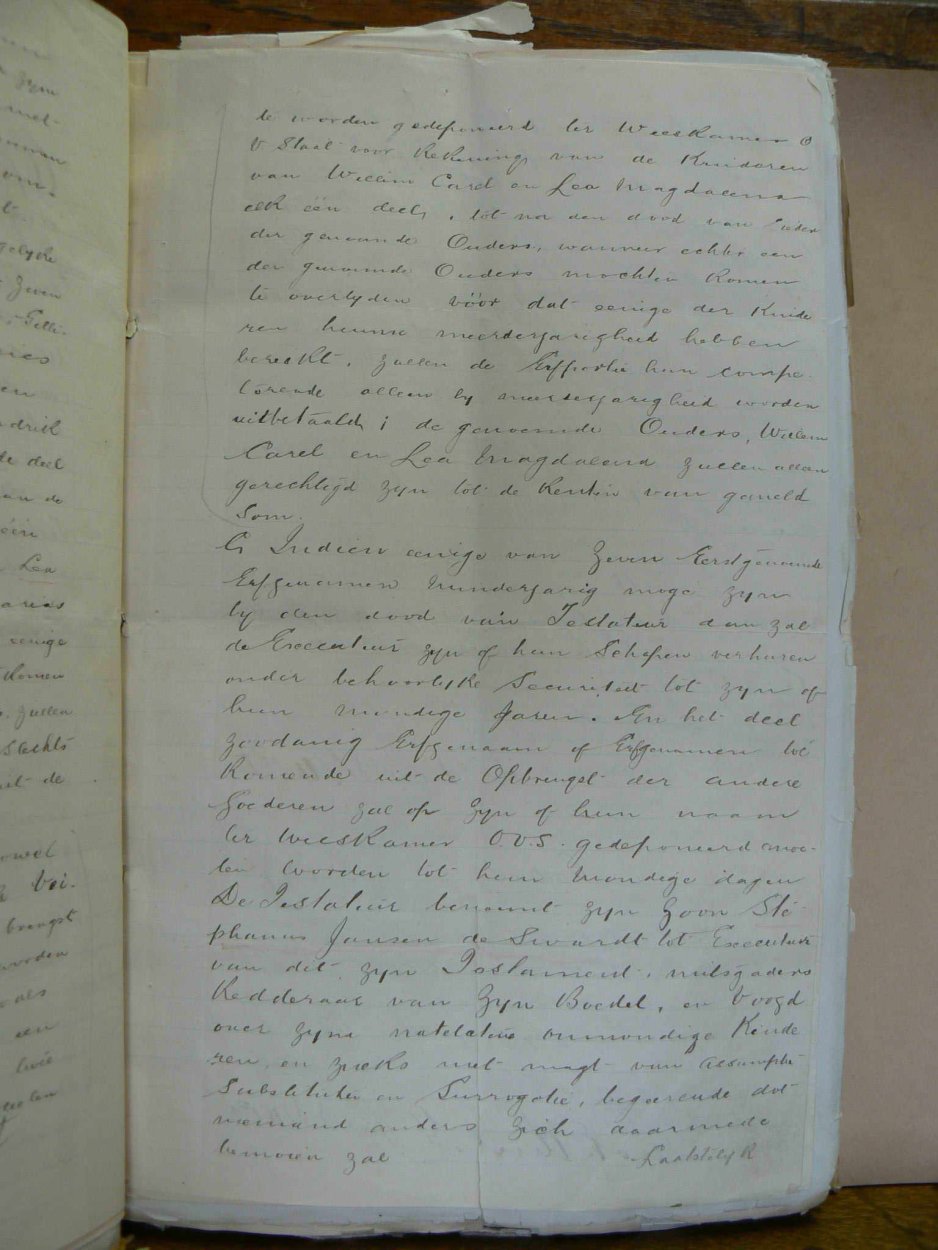 te worden gedeponeerd ter Weeskamer O
V Staat voor Rekening van de Kinderen
van Willem Carel en Lea Magdalena
elk één deel, tot na den dood van Ieder
der genoemde Ouders, wanneer echter een
der genoemde Ouders mochten Komen
te overlyden vóór dat eenige der Kinde
ren hunne meerderjarigheid hebben
bereikt, zullen de Erfportie hun compe-
terende alleen by meerderjarigheid worden
uitbetaald; de genoemde Ouders, Willem
Carel en Lea Magdalena zullen alleen
gerechtigd zyn tot de Renten van gemeld
Som.
G Indien eenige van Zeven Eerstgenoemde
Erfgenamen minderjarig moge zyn
by den dood van Testateur dan zal
de Executeur zyn of hun Schapen verhuren
onder behoorlyke Securiteit tot zyn of
hun mondige Jaren. En het deel
zoodanig Erfgenaam of Erfgenamen toe
Komende uit de Opbrengst der andere
Goederen zal op Zyn of hun naam
ter Weeskamer O.V.S. gedeponeerd moe-
ten worden tot hun Mondige dagen
De Testateur benoemt zyn Zoon Ste-
phanus Jansen de Swardt tot Executeur
van dit zyn Testament, mitsgaders
Redderaar van Zyn Boedel, en Voogd
over zyne natelatene onmondige Kinde
ren, en zulks met magt van Assumptie
Substitutie en Surrogatie, begeerende dat
niemand anders Zich daarmede
bemoeien zal
Laatstelyk
gelyke
Zeven
en
drik
de deel
an de
één
Lea
eenige
Komen
zullen
Slechts
uit de
brengst
worden
als
een